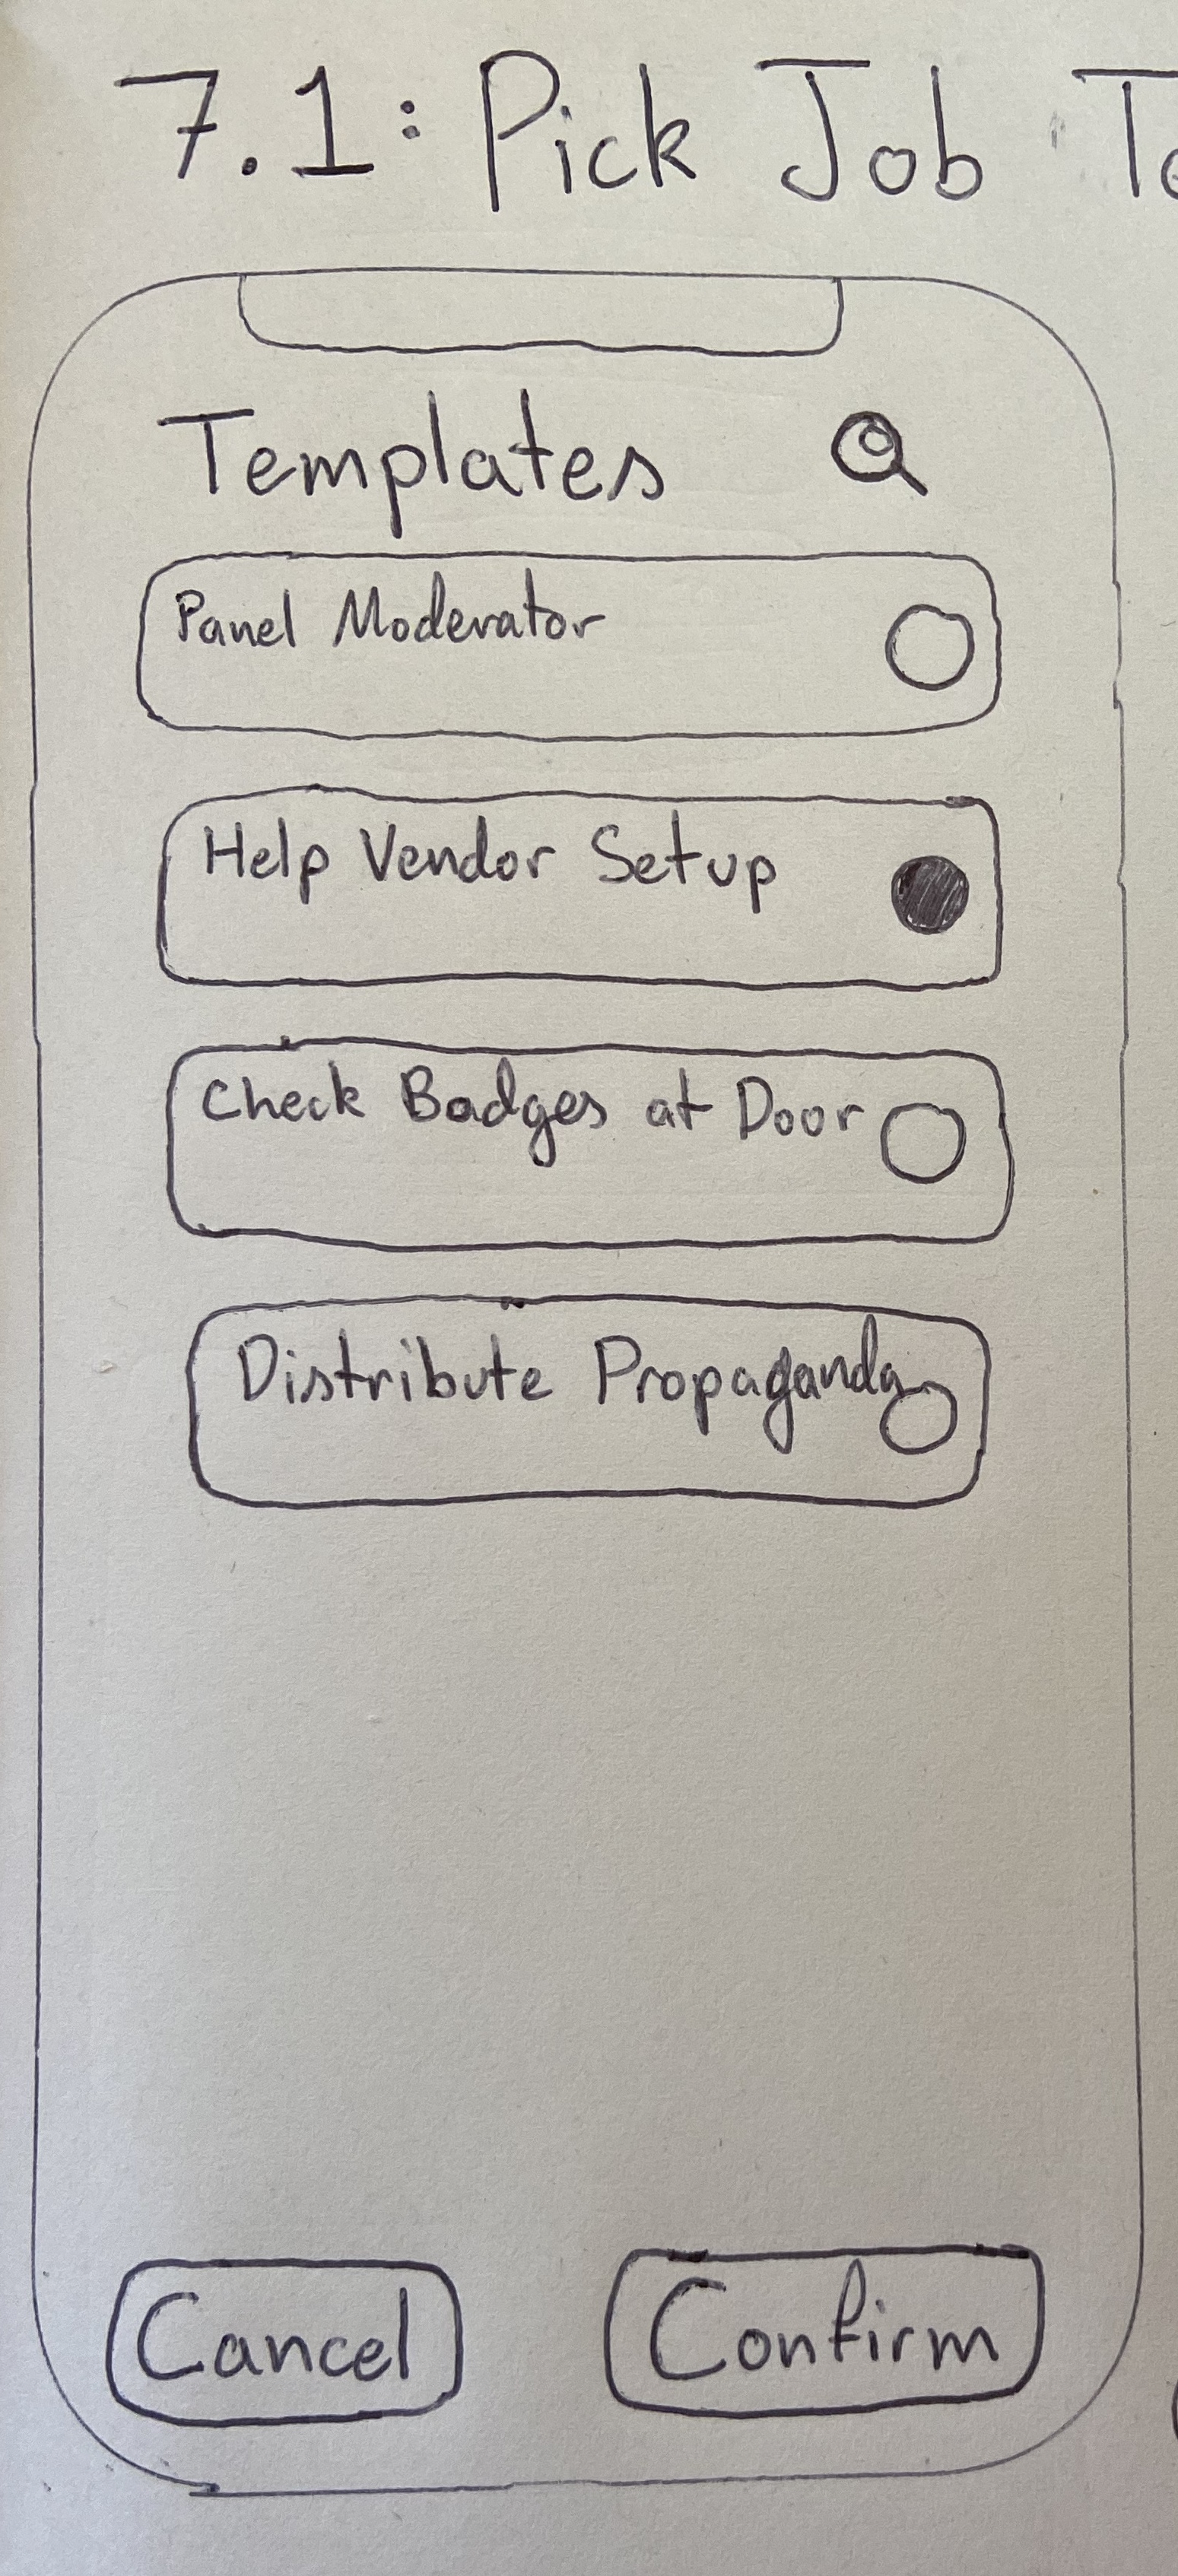 7.1: Pick Job Te
Templates
Panel Moderator
Help Vendor Setup
Check Badges at Door
Distribute Propaganda
Cancel
Confirm